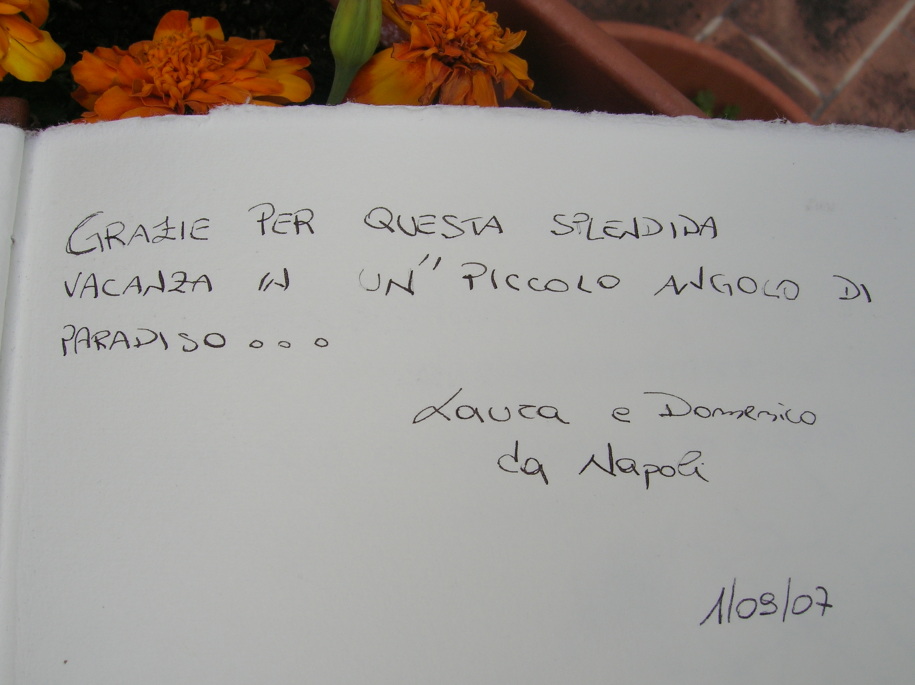 GRAZIE PER QUESTA SPLENDIDA
VACANZA IN UN" PICCOLO ANGOLO DI
PARADISO...
Laura e Domenico
da Napoli
1/09/07